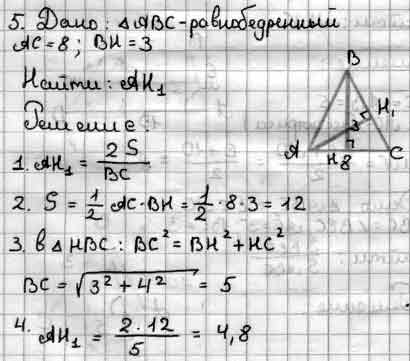 5. Дано: △ABC - равнобедренный
AC=8; BH=3
Найти: AH₁
Решение:
1. AH₁ = 2S / BC
2. S = 1/2 AC·BH = 1/2 · 8 · 3 = 12
3. в △HBC: BC² = BH² + HC²
BC = √(3² + 4²) = 5
4. AH₁ = 2·12 / 5 = 4,8
B
H₁
3
A
H
8
C